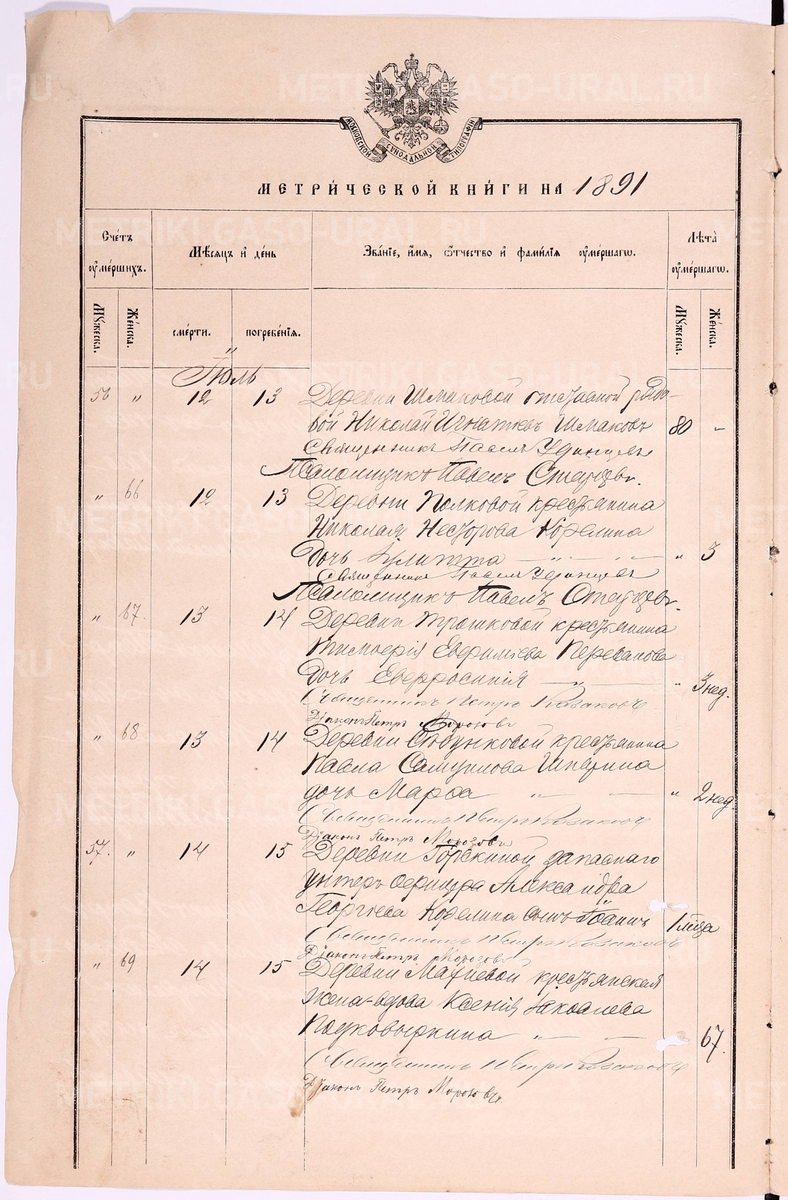 METRIKI.GASO-URAL.RU
МОСКОВСКОЙ СѴНОДАЛЬНОЙ ТИПОГРАФІИ
МЕТРИ́ЧЕСКОЙ КНИ́ГИ НА 1891
Сче́тъ ᲂу҆ме́ршихъ.
Мѣ́сяцъ и҆ де́нь
Зва́нїе, и҆́мя, ѻ҆́тчество и҆ фами́лїя ᲂу҆ме́ршагѡ.
Лѣ́та ᲂу҆ме́ршагѡ.
Мꙋ́жеска.
Же́нска.
сме́рти.
погребе́нїя.
Мꙋ́жеска.
Же́нска.
Іюль
56 " 12 13 Деревни Шмаковой отставной рядо-
вой Николай Игнатьев Шмаковъ 80 -
Священникъ Павелъ Удинцевъ
Псаломщикъ Павелъ Старцевъ.
" 66 12 13 Деревни Полковой крестьянина
Николая Несторова Корелина
дочь Улита " 3
Священникъ Павелъ Удинцевъ
Псаломщикъ Павелъ Старцевъ.
" 67. 13 14 Деревни Трошковой крестьянина
Евфимиева
дочь Евфросинія " 3 нед.
Священникъ Петръ
Діаконъ Петръ Морозовъ
" 68 13 14 Деревни крестьянина
Павла Самуилова
дочь Марѳа " " " 2 нед.
Священникъ Петръ
Діаконъ Петръ Морозовъ
57. " 14 15 Деревни запаснаго
унтеръ офицера Александра
Георгіева Корелина сынъ Іоаннъ 1 м̃ца
Священникъ Петръ
Діаконъ Петръ Морозовъ
" 69 14 15 Деревни крестьянская
жена-вдова Ксенія Яковлева
Подковыркина 67.
Священникъ Петръ
Діаконъ Петръ Морозовъ